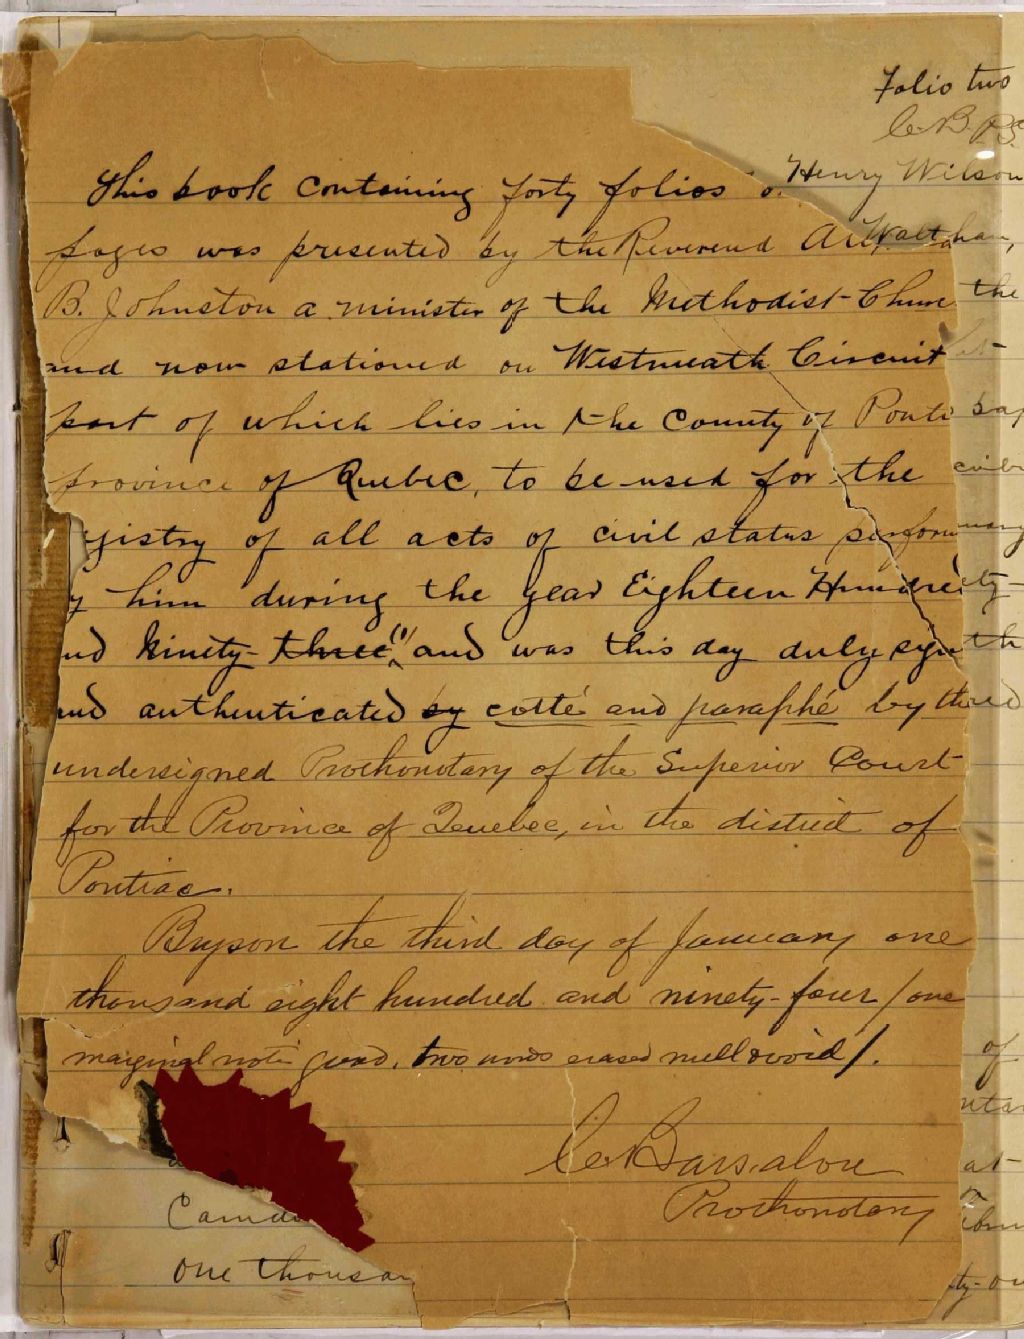 Folio two
C. B. P.S.
Henry Wilson
This book containing forty folios o
pages was presented by the Reverend
Waltham,
B. Johnston a minister of the Methodist Churc
the
and now stationed on Westmeath Circuit
part of which lies in the County of Ponti
bap
province of Quebec, to be used for the
gistry of all acts of civil status perform
y him during the year Eighteen Hundred
ety-
nd Ninety-three and was this day duly sign
th
and authenticated by cotté and paraphé by the
undersigned Prothonotary of the Superior Court
for the Province of Quebec, in the district of
Pontiac.
Bryson the third day of January one
thousand eight hundred and ninety-four / one
marginal note good. two words erased null & void /.
of
C. Barsalou
at
Prothonotary
Camd
one thousan
ty-on